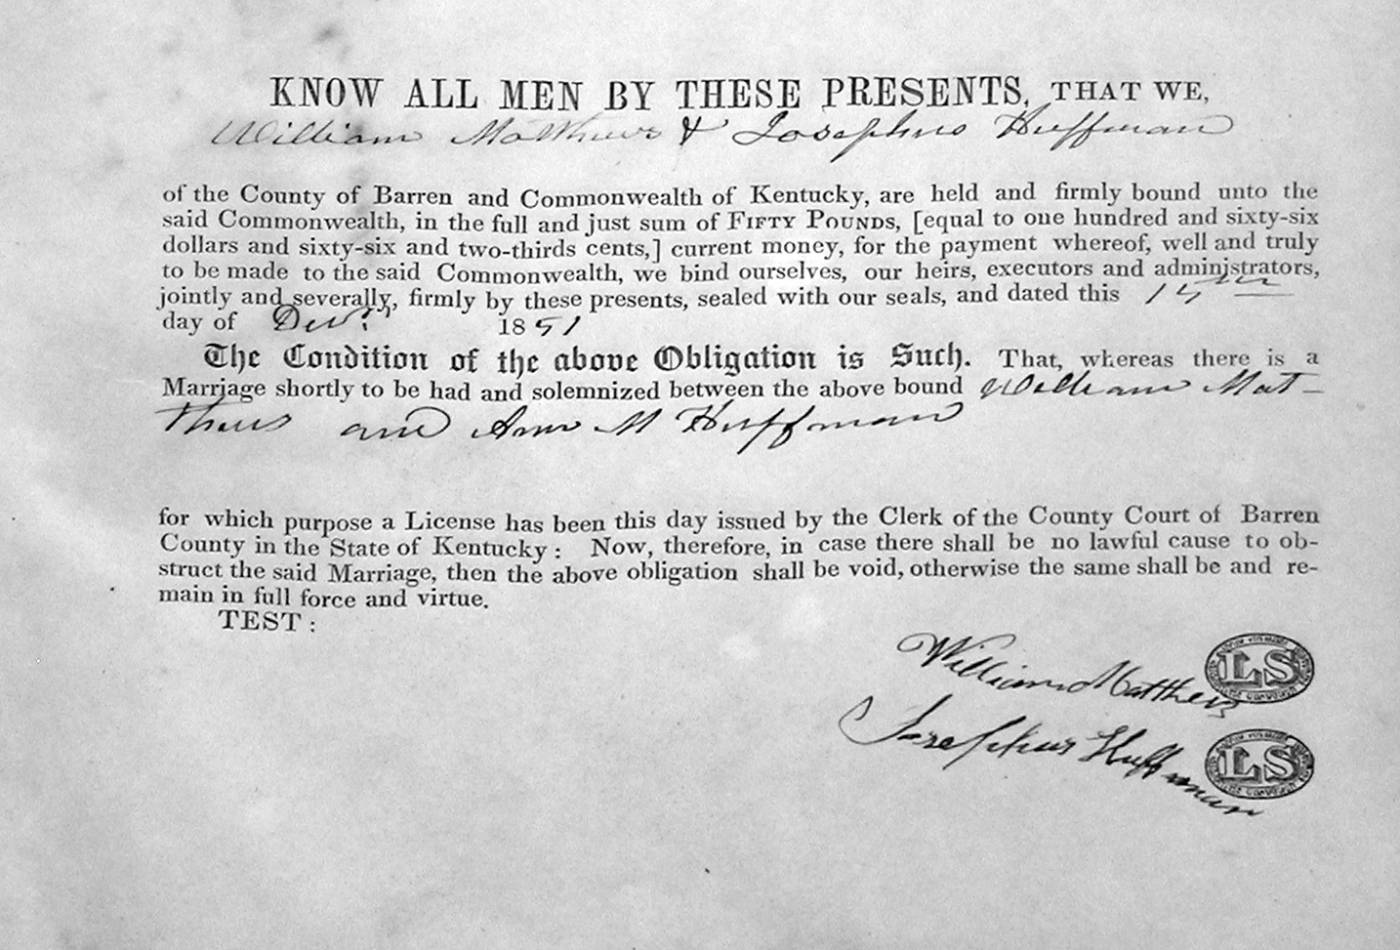 KNOW ALL MEN BY THESE PRESENTS, THAT WE,
William Matthews & Josephus Huffman
of the County of Barren and Commonwealth of Kentucky, are held and firmly bound unto the
said Commonwealth, in the full and just sum of FIFTY POUNDS, [equal to one hundred and sixty-six
dollars and sixty-six and two-thirds cents,] current money, for the payment whereof, well and truly
to be made to the said Commonwealth, we bind ourselves, our heirs, executors and administrators,
jointly and severally, firmly by these presents, sealed with our seals, and dated this 15th
day of Decr. 1851
The Condition of the above Obligation is Such. That, whereas there is a
Marriage shortly to be had and solemnized between the above bound William Mat-
thews and Ann M Huffman
for which purpose a License has been this day issued by the Clerk of the County Court of Barren
County in the State of Kentucky: Now, therefore, in case there shall be no lawful cause to ob-
struct the said Marriage, then the above obligation shall be void, otherwise the same shall be and re-
main in full force and virtue.
TEST:
William Matthews LS
Josephus Huffman LS